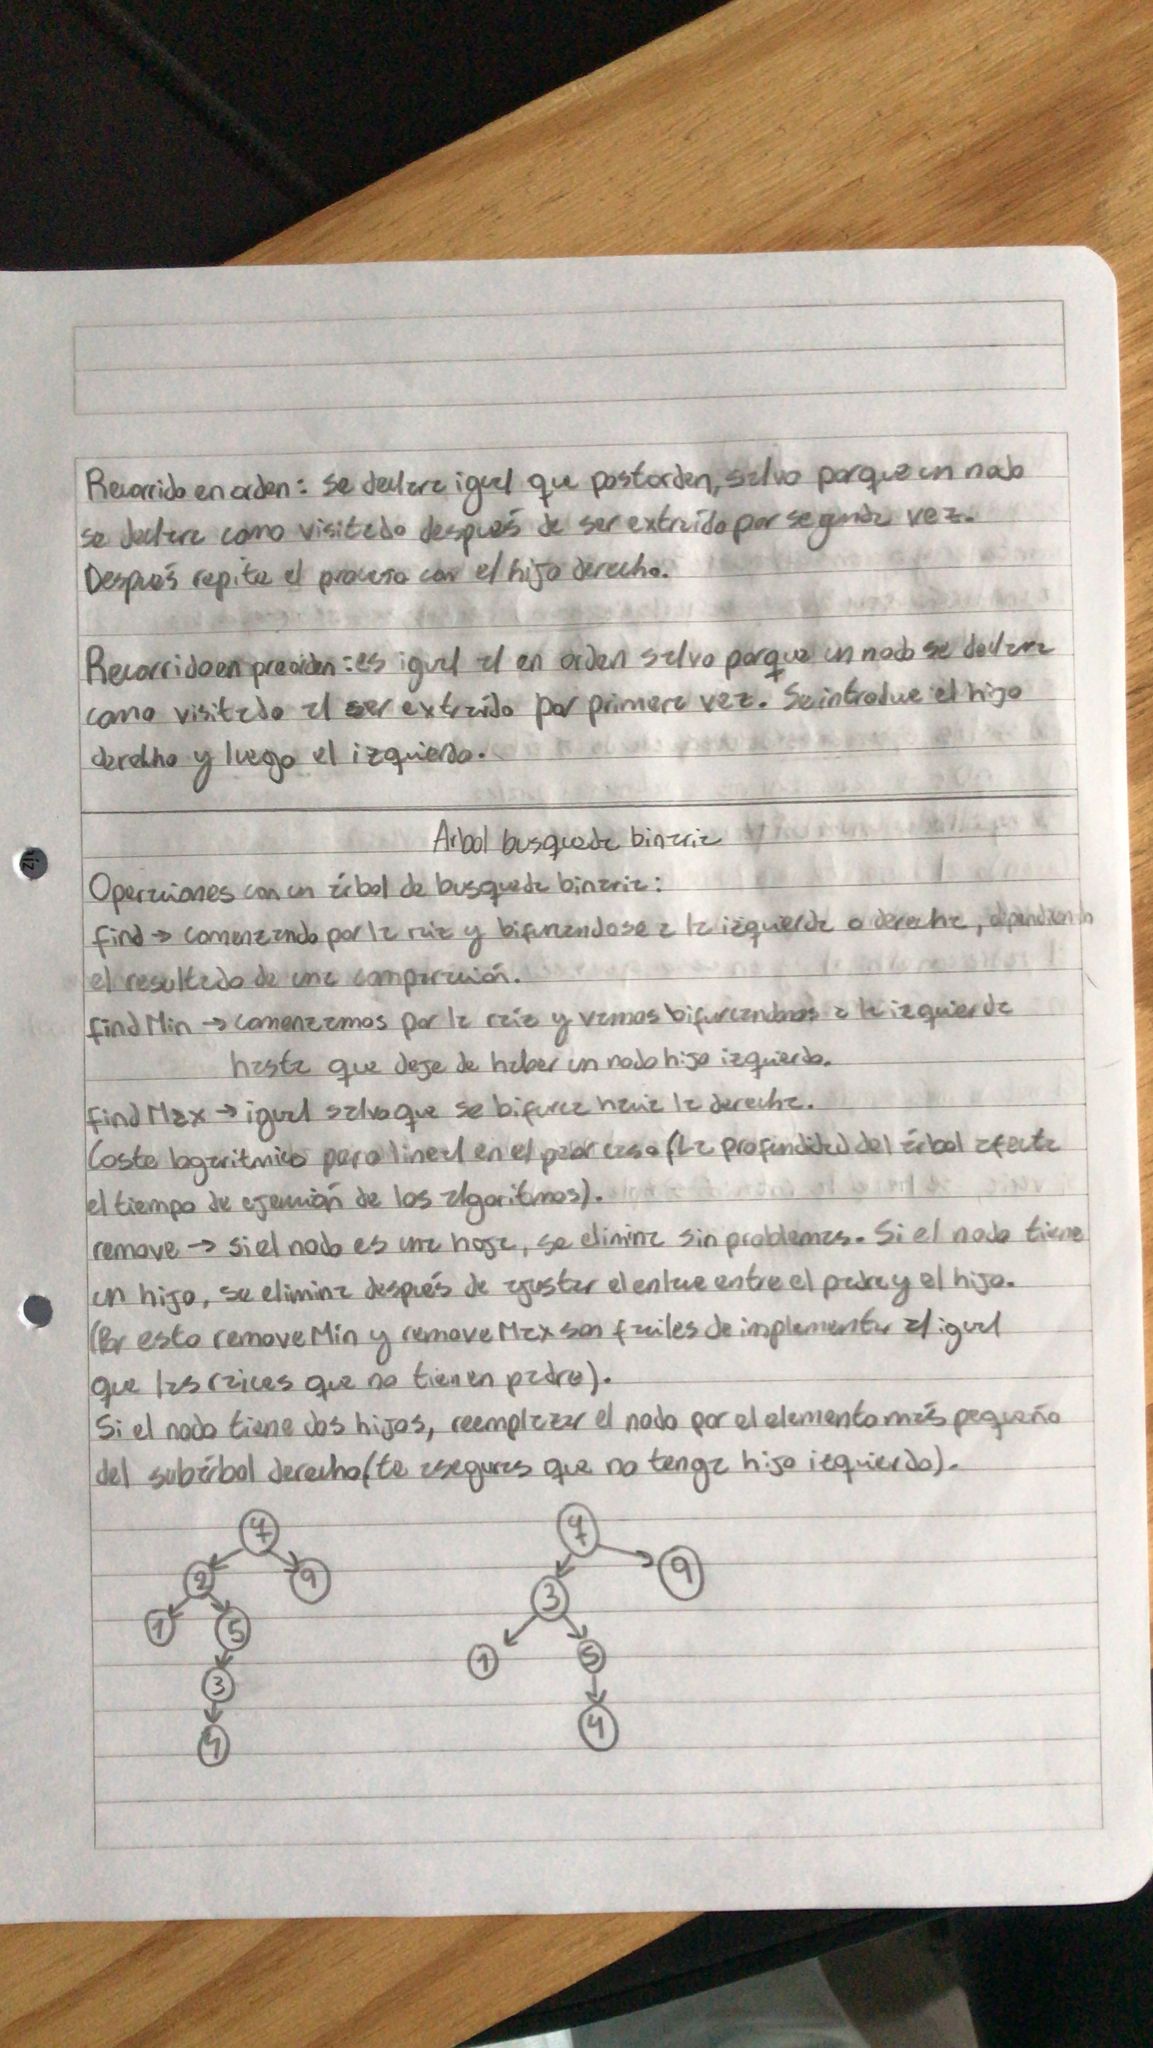 Recorrido en orden: se declara igual que postorden, salvo porque un nodo
se declara como visitado después de ser extraído por segunda vez.
Después repite el proceso con el hijo derecho.
Recorrido en preorden: es igual al en orden salvo porque un nodo se declara
como visitado al ser extraído por primera vez. Se introduce el hijo
derecho y luego el izquierdo.
Arbol busqueda binaria
Operaciones con un árbol de busqueda binaria:
find → comenzando por la raiz y bifurcandose a la izquierda o derecha, dependiendo
el resultado de una comparación.
findMin → comenzamos por la raíz y vamos bifurcandonos a la izquierda
hasta que deje de haber un nodo hijo izquierdo.
findMax → igual salvo que se bifurca hacia la derecha.
Costo logaritmico pero lineal en el peor caso (La profundidad del árbol afecta
el tiempo de ejecución de los algoritmos).
remove → si el nodo es una hoja, se elimina sin problemas. Si el nodo tiene
un hijo, se elimina después de ajustar el enlace entre el padre y el hijo.
(Por esto removeMin y removeMax son faciles de implementar al igual
que las raices que no tienen padre).
Si el nodo tiene dos hijos, reemplazar el nodo por el elemento más pequeño
del subárbol derecho (te aseguras que no tenga hijo izquierdo).
7 7
2 9 3 9
1 5 1 5
3 4
4